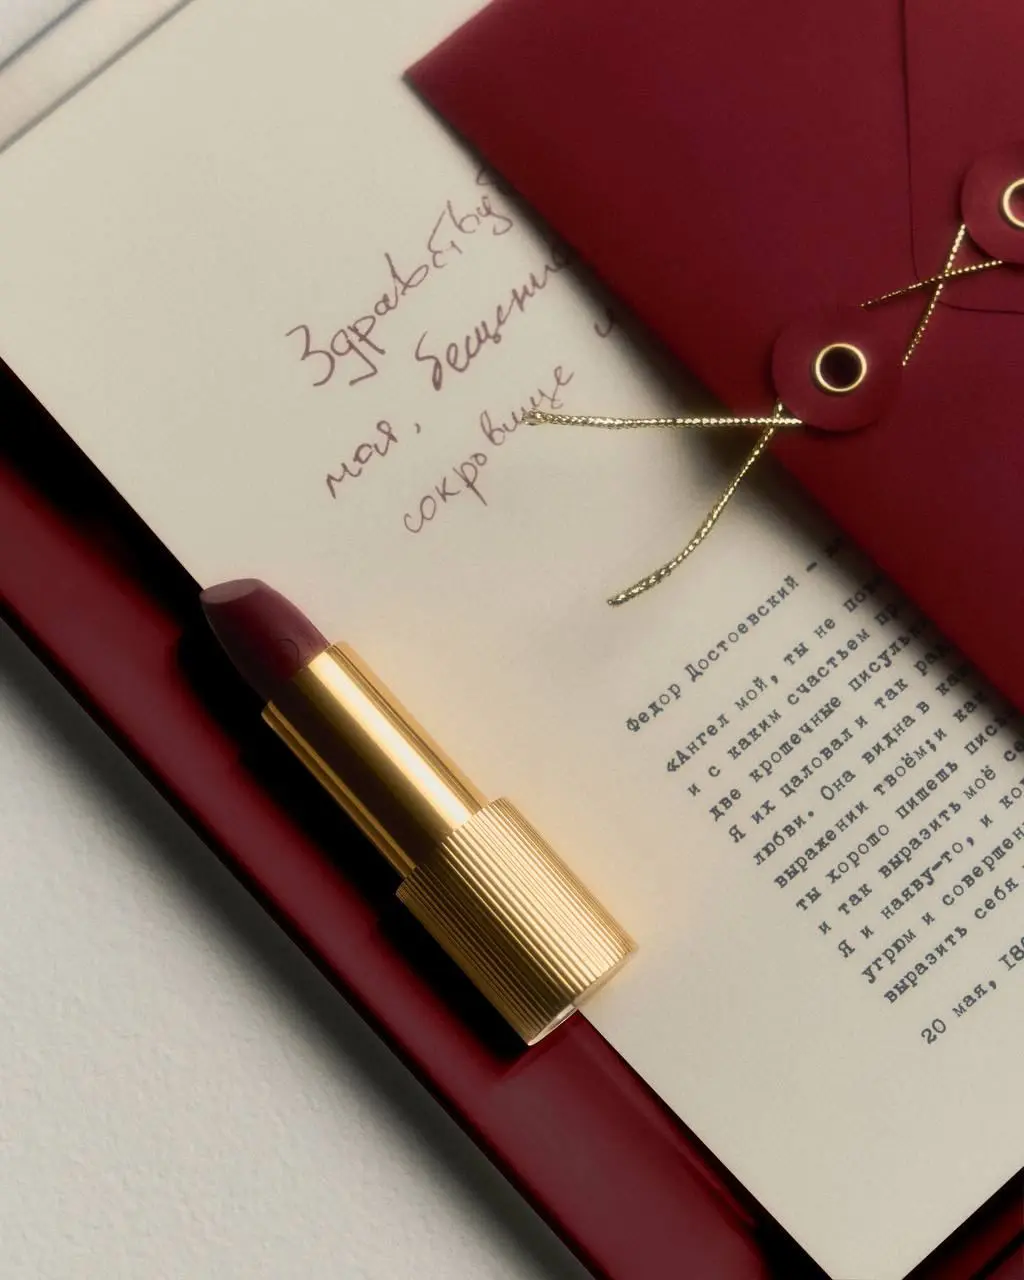 Здравствуй
мая, бесценн
сокровище
Федор Достоевский –
«Ангел мой, ты не
и с каким счастьем
две крошечные
Я их цаловал и так
любви. Она видна в
выражении твоём; и
ты хорошо пишешь
и так выразить моё
Я и наяву-то, и
угрюм и совершен
выразить себя
20 мая,